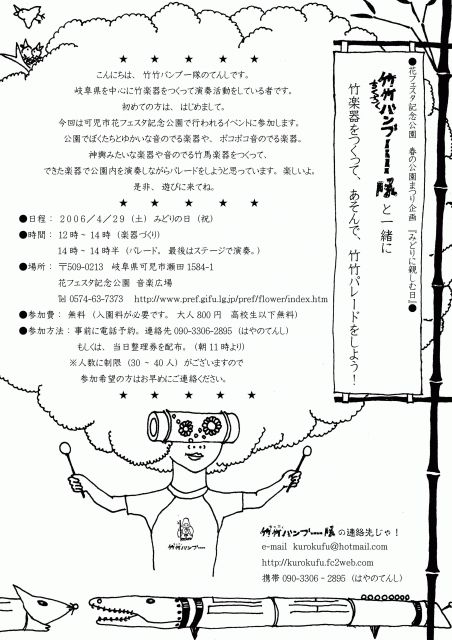 ●花フェスタ記念公園 春の公園まつり企画 『みどりに親しむ日』●
竹竹バンブー隊と一緒に
ちくちく
竹楽器をつくって、あそんで、竹竹パレードをしよう！
★ ★ ★ ★ ★
こんにちは、竹竹バンブー隊のてんしです。
岐阜県を中心に竹楽器をつくって演奏活動をしている者です。
初めての方は、はじめまして。
今回は可児市花フェスタ記念公園で行われるイベントに参加します。
公園でぼくたちとゆかいな音のでる楽器や、ポコポコ音のでる楽器。
神輿みたいな楽器や音のでる竹馬楽器をつくって、
できた楽器で公園内を演奏しながらパレードをしようと思っています。楽しいよ。
是非、遊びに来てね。
★ ★ ★ ★ ★
●日程： 2006／4／29（土）みどりの日（祝）
●時間： 12時～14時（楽器づくり）
14時～14時半（パレード。最後はステージで演奏。）
●場所： 〒509-0213 岐阜県可児市瀬田1584-1
花フェスタ記念公園 音楽広場
℡ 0574-63-7373 http://www.pref.gifu.lg.jp/pref/flower/index.htm
●参加費： 無料（入園料が必要です。大人800円 高校生以下無料）
●参加方法：事前に電話予約。連絡先090-3306-2895（はやのてんし）
もしくは、当日整理券を配布。（朝11時より）
※人数に制限（30～40人）がございますので
参加希望の方はお早めにご連絡ください。
★ ★ ★ ★ ★
竹竹バンブー
竹竹バンブー隊の連絡先じゃ！
e-mail kurokufu@hotmail.com
http://kurokufu.fc2web.com
携帯 090-3306-2895（はやのてんし）